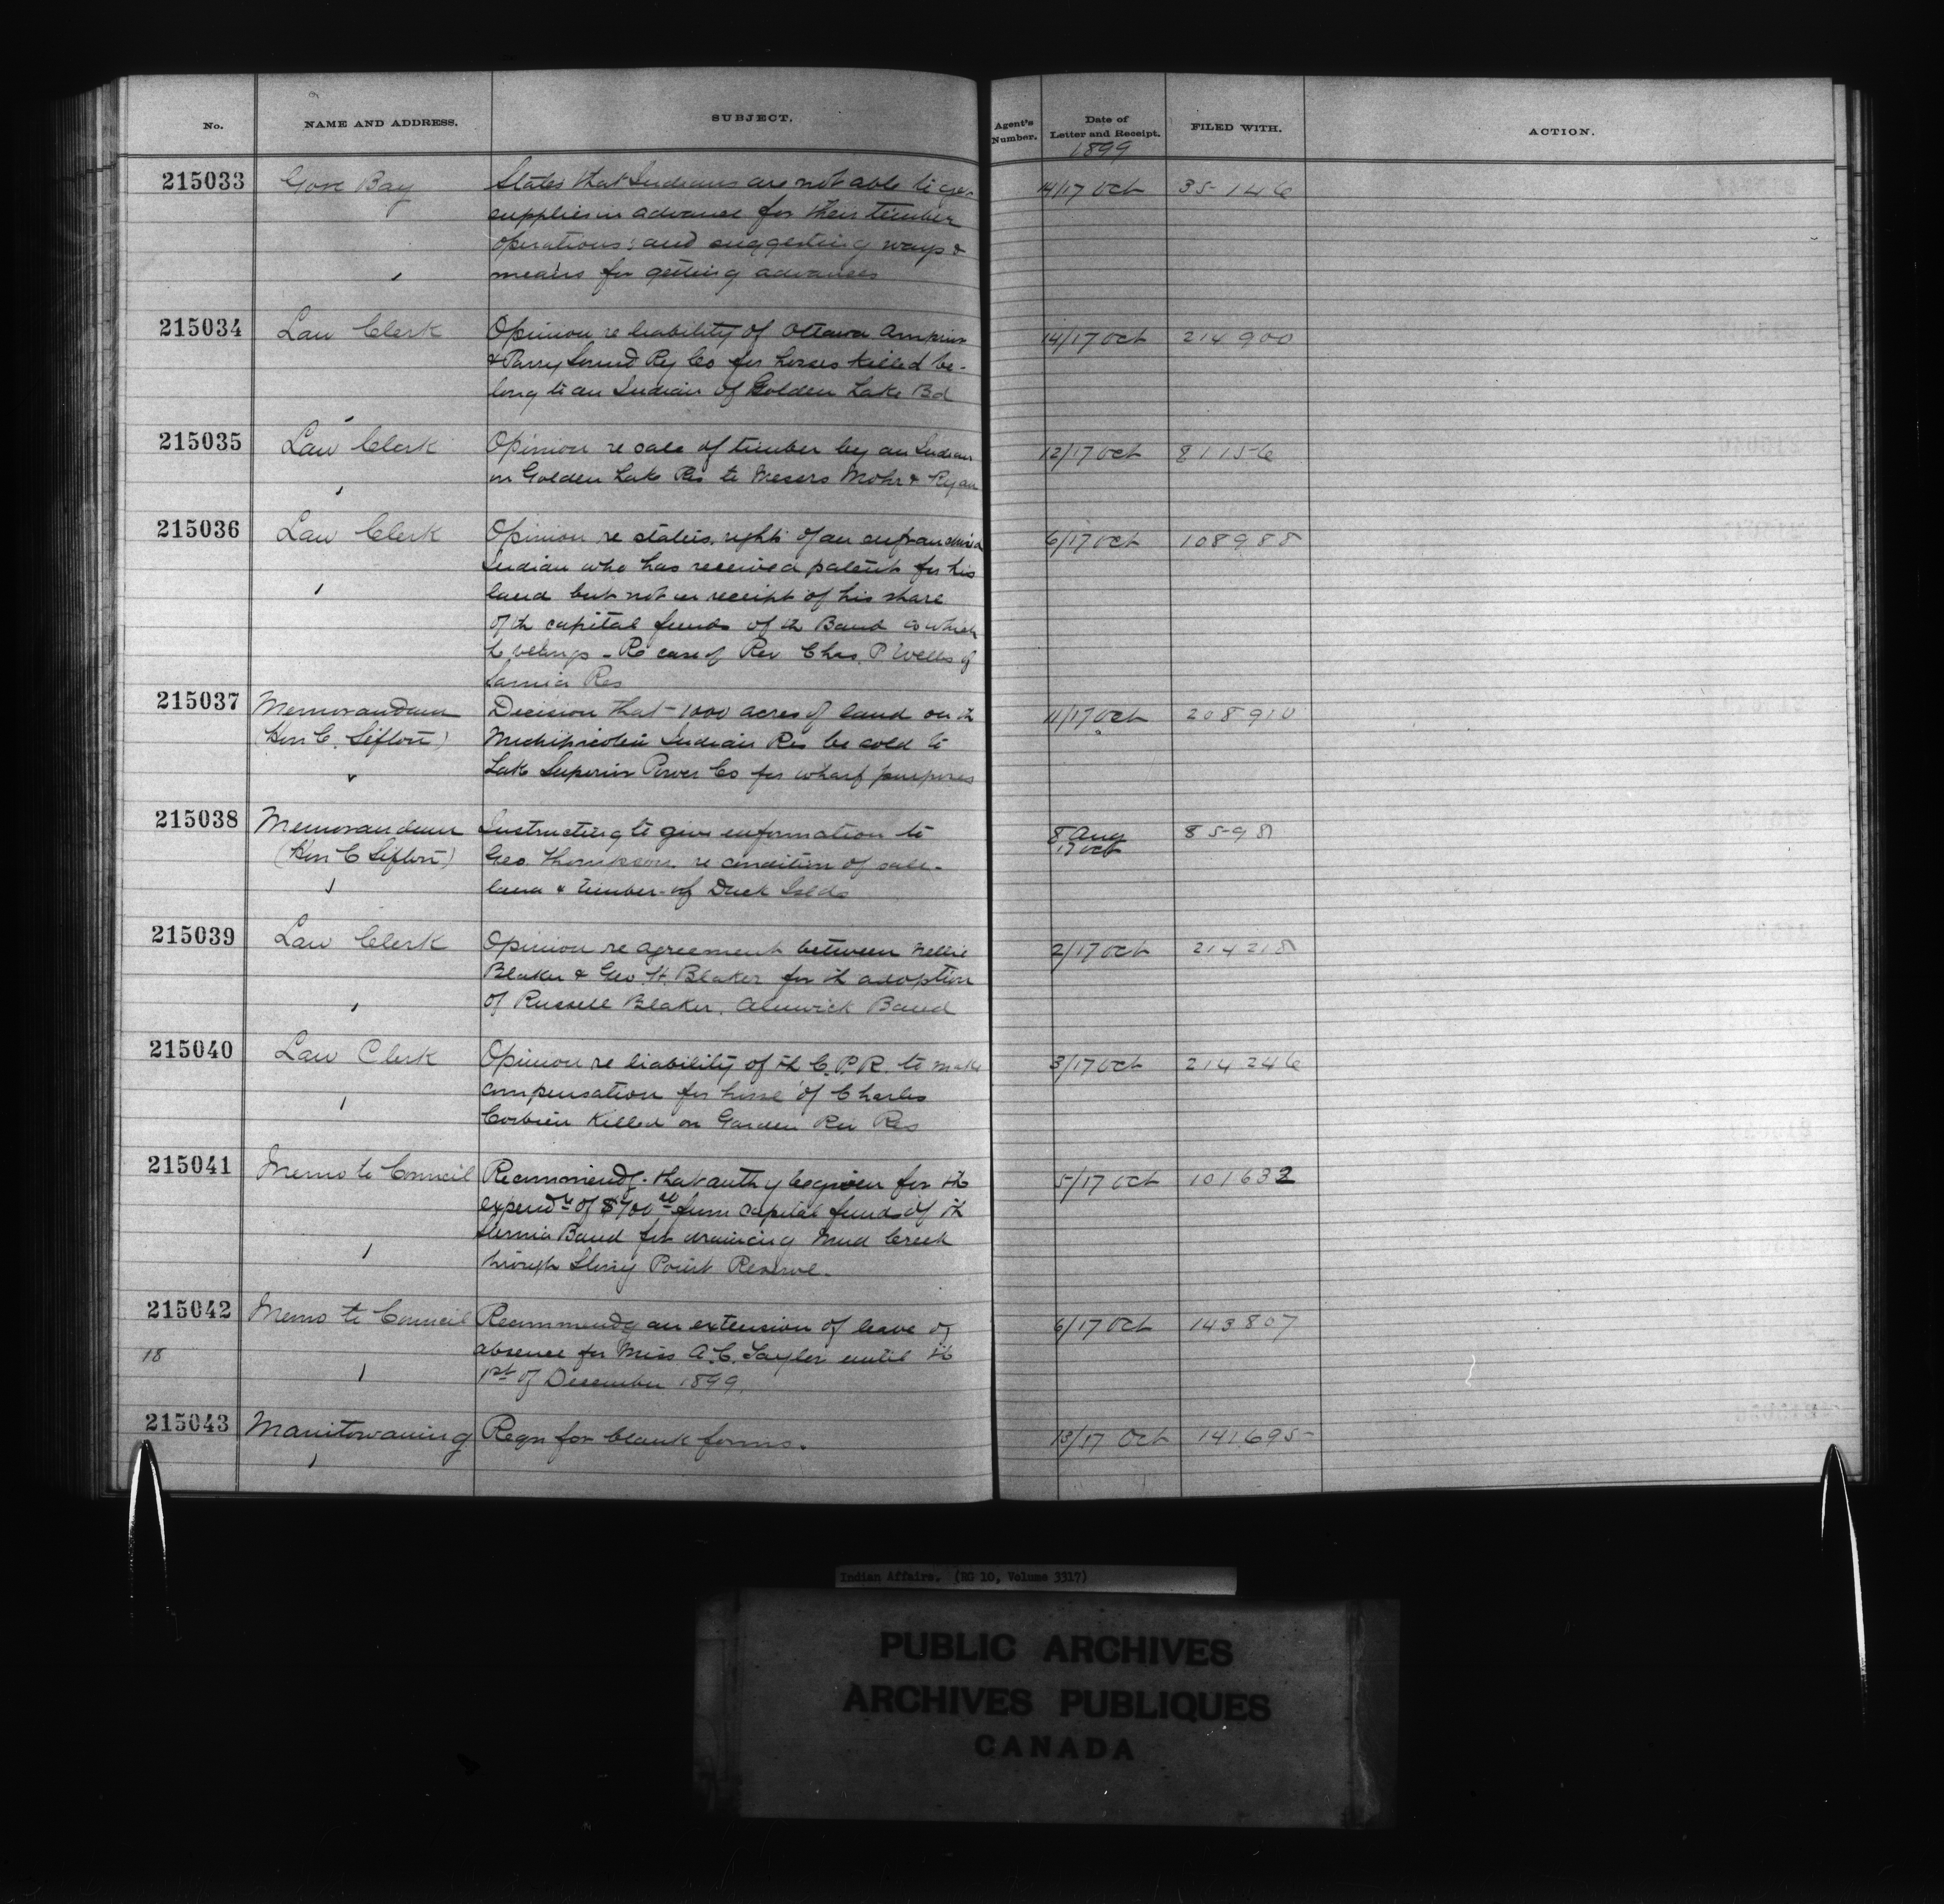 No. NAME AND ADDRESS. SUBJECT. Agent's Number. Date of Letter and Receipt. FILED WITH. ACTION.
1899
215033 Gore Bay States that Indians are not able to get 14/17 Oct 35146
supplies in advance for their timber
operations; and suggesting ways &
means for getting advances
215034 Law Clerk Opinion re liability of Ottawa Arnprior 14/17 Oct 214900
& Parry Sound Ry Co for horses killed be-
long to an Indian of Golden Lake Bd
215035 Law Clerk Opinion re sale of timber by an Indian 12/17 Oct 81156
on Golden Lake Res to Messrs Mohr & Ryan
215036 Law Clerk Opinion re status, rights of an enfranchised 6/17 Oct 108988
Indian who has received patent for his
land but not in receipt of his share
of th capital funds of th Band to which
he belongs - Re case of Rev Chas. P Wells of
Sarnia Res
215037 Memorandum Decision that 1000 acres of land on th 11/17 Oct 208910
(Hon C. Sifton) Michipicoten Indian Res be sold to
Lake Superior Power Co for wharf purposes
215038 Memorandum Instructing to give information to 8 Aug 8598
(Hon C Sifton) Geo. Thompson re condition of sale- 17 Oct
land & timber of Duck Islds
215039 Law Clerk Opinion re agreement between Nellie 2/17 Oct 214218
Blaker & Geo. H. Blaker for th adoption
of Russell Blaker, Alnwick Band
215040 Law Clerk Opinion re liability of th C.P.R. to make 3/17 Oct 214246
compensation for horse of Charles
Corbiere killed on Garden Riv Res
215041 Memo to Council Recommendg. that auth'y be given for th 5/17 Oct 101632
expendre of $700 00 from capital funds of th
Sarnia Band for draining Mud Creek
through Stony Point Reserve.
215042 Memo to Council Recommendg an extension of leave of 6/17 Oct 143807
18 absence for Miss A.C. Taylor until th
1st of December 1899.
215043 Manitowaning Reqn for blank forms. 13/17 Oct 141695
Indian Affairs. (RG 10, Volume 3317)
PUBLIC ARCHIVES
ARCHIVES PUBLIQUES
CANADA